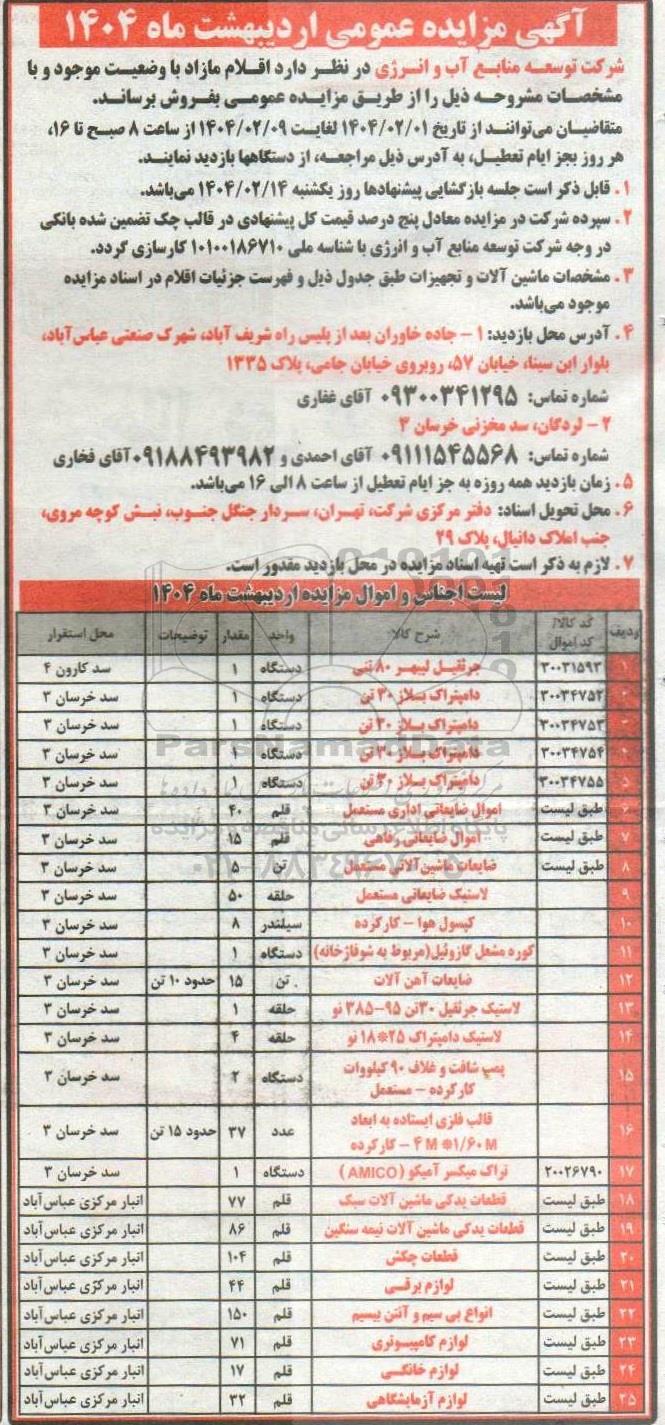 آگهی مزایده عمومی اردیبهشت ماه ۱۴۰۴
شرکت توسعه منابع آب و انرژی در نظر دارد اقلام مازاد با وضعیت موجود و با
مشخصات مشروحه ذیل را از طریق مزایده عمومی بفروش برساند.
متقاضیان می‌توانند از تاریخ ۱۴۰۴/۰۲/۰۱ لغایت ۱۴۰۴/۰۲/۰۹ از ساعت ۸ صبح تا ۱۶،
هر روز بجز ایام تعطیل، به آدرس ذیل مراجعه، از دستگاهها بازدید نمایند.
۱. قابل ذکر است جلسه بازگشایی پیشنهادها روز یکشنبه ۱۴۰۴/۰۲/۱۴ می‌باشد.
۲. سپرده شرکت در مزایده معادل پنج درصد قیمت کل پیشنهادی در قالب چک تضمین شده بانکی
در وجه شرکت توسعه منابع آب و انرژی با شناسه ملی ۱۰۱۰۰۱۸۶۷۱۰ کارسازی گردد.
۳. مشخصات ماشین آلات و تجهیزات طبق جدول ذیل و فهرست جزئیات اقلام در اسناد مزایده
موجود می‌باشد.
۴. آدرس محل بازدید: ۱ - جاده خاوران بعد از پلیس راه شریف آباد، شهرک صنعتی عباس‌آباد،
بلوار ابن سینا، خیابان ۵۷، روبروی خیابان جامی، پلاک ۱۳۳۵
شماره تماس: ۰۹۳۰۰۳۴۱۲۹۵ آقای غفاری
۲ - لردگان، سد مخزنی خرسان ۳
شماره تماس: ۰۹۱۱۱۵۴۵۵۶۸ آقای احمدی و ۰۹۱۸۸۴۹۳۹۸۲ آقای فخاری
۵. زمان بازدید همه روزه به جز ایام تعطیل از ساعت ۸ الی ۱۶ می‌باشد.
۶. محل تحویل اسناد: دفتر مرکزی شرکت، تهران، سردار جنگل جنوب، نبش کوچه مروی،
جنب املاک دانیال، پلاک ۲۹
۷. لازم به ذکر است تهیه اسناد مزایده در محل بازدید مقدور است.
لیست اجناس و اموال مزایده اردیبهشت ماه ۱۴۰۴
ردیف کد کالا/ کد اموال شرح کالا واحد مقدار توضیحات محل استقرار
۱ ۳۰۰۳۱۵۹۳ جرثقیل لیبهر ۸۰ تنی دستگاه ۱ سد کارون ۴
۲ ۳۰۰۳۴۷۵۲ دامپتراک بلاز ۳۰ تن دستگاه ۱ سد خرسان ۳
۳ ۳۰۰۳۴۷۵۳ دامپتراک بلاز ۳۰ تن دستگاه ۱ سد خرسان ۳
۴ ۳۰۰۳۴۷۵۴ دامپتراک بلاز ۳۰ تن دستگاه ۱ سد خرسان ۳
۵ ۳۰۰۳۴۷۵۵ دامپتراک بلاز ۳۰ تن دستگاه ۱ سد خرسان ۳
۶ طبق لیست اموال ضایعاتی اداری مستعمل قلم ۴۰ سد خرسان ۳
۷ طبق لیست اموال ضایعاتی رفاهی قلم ۱۵ سد خرسان ۳
۸ طبق لیست ضایعات ماشین آلاتی مستعمل تن ۵ سد خرسان ۳
۹ لاستیک ضایعاتی مستعمل حلقه ۵۰ سد خرسان ۳
۱۰ کپسول هوا - کارکرده سیلندر ۸ سد خرسان ۳
۱۱ کوره مشعل گازوئیل(مربوط به شوفاژخانه) دستگاه ۱ سد خرسان ۳
۱۲ ضایعات آهن آلات تن ۱۵ حدود ۱۰ تن سد خرسان ۳
۱۳ لاستیک جرثقیل ۳۰تن ۹۵-۳۸۵ نو حلقه ۱ سد خرسان ۳
۱۴ لاستیک دامپتراک ۲۵*۱۸ نو حلقه ۴ سد خرسان ۳
۱۵ پمپ شافت و غلاف ۹۰ کیلووات کارکرده - مستعمل دستگاه ۲ سد خرسان ۳
۱۶ قالب فلزی ایستاده به ابعاد ۴M*۱/۶۰M - کارکرده عدد ۳۷ حدود ۱۵ تن سد خرسان ۳
۱۷ ۲۰۰۲۶۷۹۰ تراک میکسر آمیکو (AMICO) دستگاه ۱ سد خرسان ۳
۱۸ طبق لیست قطعات یدکی ماشین آلات سبک قلم ۷۷ انبار مرکزی عباس‌آباد
۱۹ طبق لیست قطعات یدکی ماشین آلات نیمه سنگین قلم ۸۶ انبار مرکزی عباس‌آباد
۲۰ طبق لیست قطعات چکش قلم ۱۰۴ انبار مرکزی عباس‌آباد
۲۱ طبق لیست لوازم برقی قلم ۴۴ انبار مرکزی عباس‌آباد
۲۲ طبق لیست انواع بی سیم و آنتن بیسیم قلم ۱۵۰ انبار مرکزی عباس‌آباد
۲۳ طبق لیست لوازم کامپیوتری قلم ۷۱ انبار مرکزی عباس‌آباد
۲۴ طبق لیست لوازم خانگی قلم ۱۷ انبار مرکزی عباس‌آباد
۲۵ طبق لیست لوازم آزمایشگاهی قلم ۳۲ انبار مرکزی عباس‌آباد
ParsNamadData